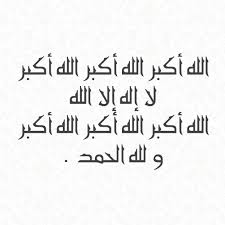 الله أكبر الله أكبر الله أكبر
لا إله إلا الله
الله أكبر الله أكبر الله أكبر
و لله الحمد .